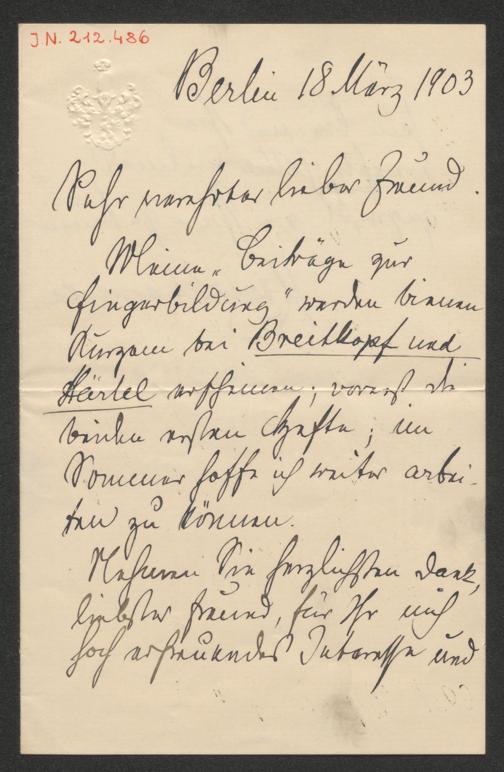 J.N. 212.486
Berlin 18 März 1903
Sehr verehrter lieber Freund.
Meine „Beiträge zur
Fingerbildung" werden binnen
Kurzem bei Breitkopf und
Härtel erscheinen; vorerst die
beiden ersten Hefte; im
Sommer hoffe ich weiter arbei-
ten zu können.
Nehmen Sie herzlichsten Dank,
liebster Freund, für Ihr mich
hoch erfreuendes Interesse und